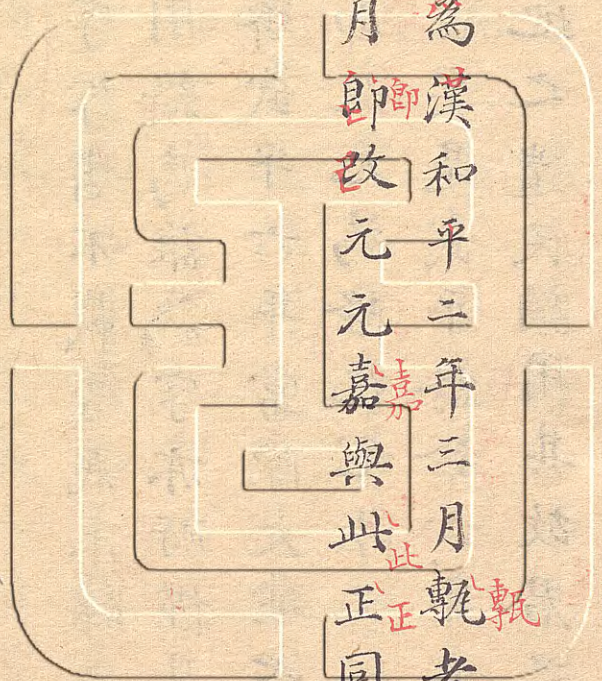 為漢和平二年三月甎者
月即改元元嘉與此正同
即
嘉
此
正
甎